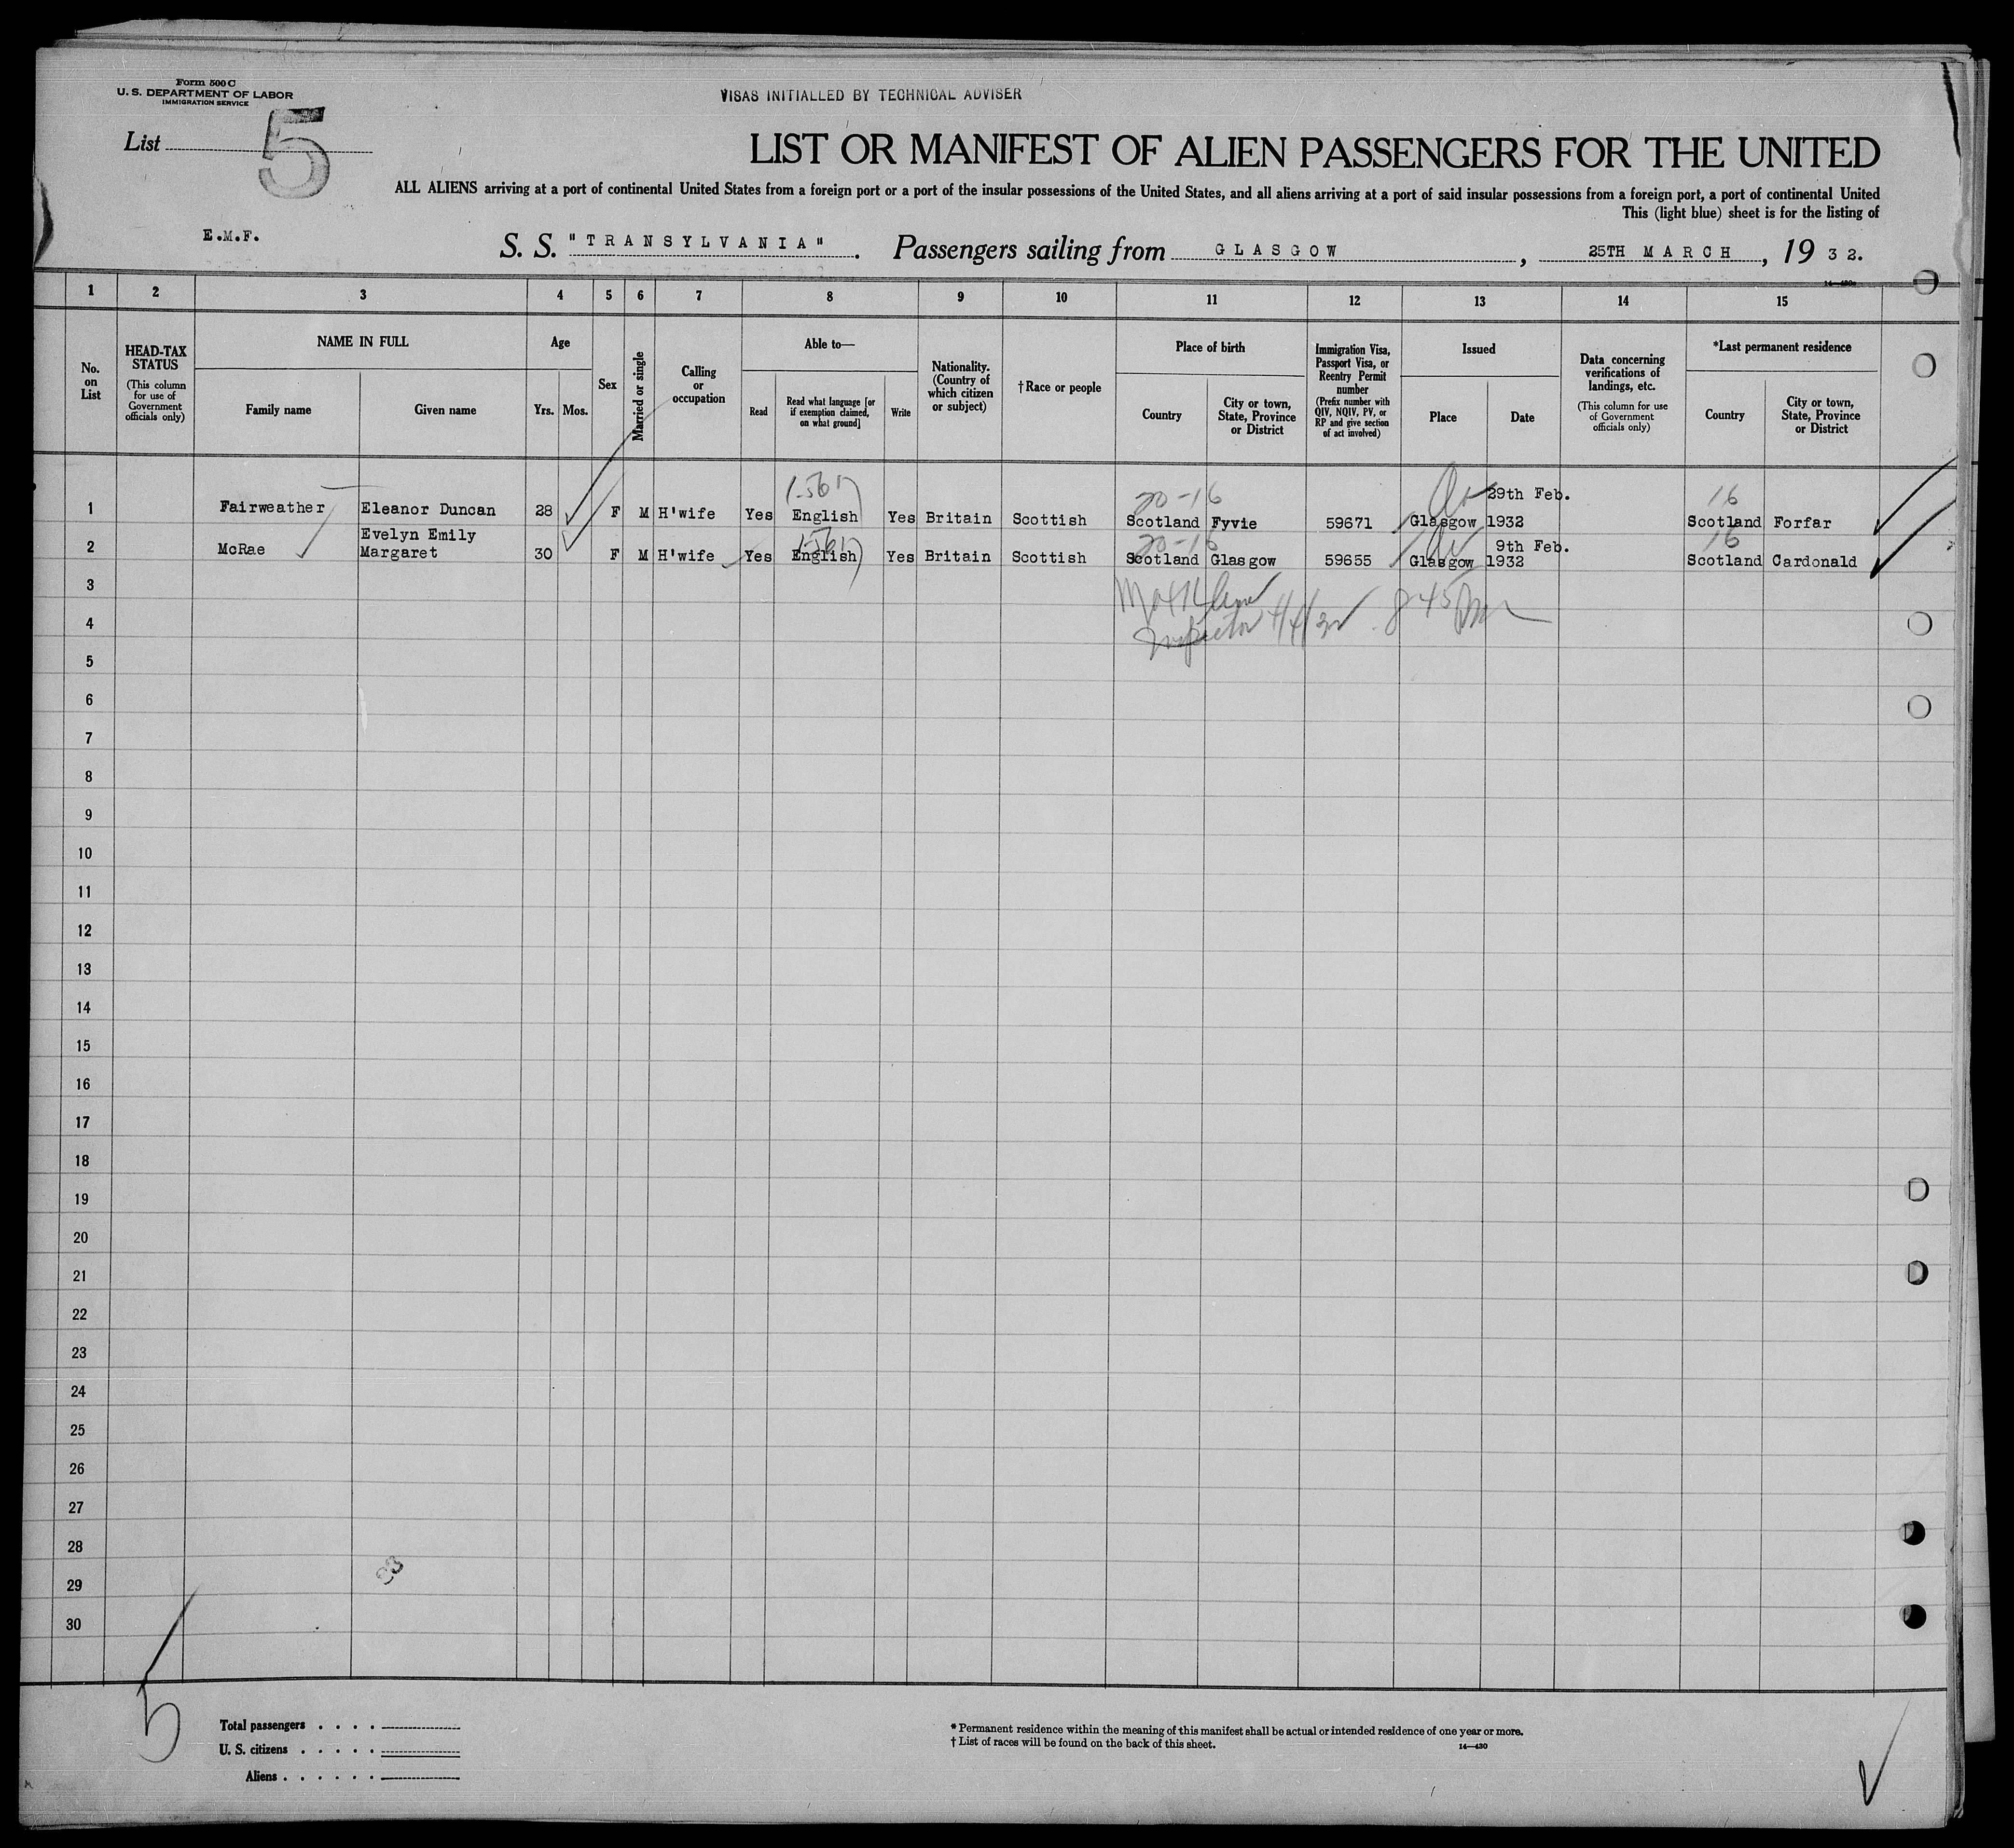 Form 500 C
U. S. DEPARTMENT OF LABOR
IMMIGRATION SERVICE
VISAS INITIALLED BY TECHNICAL ADVISER
List 5
LIST OR MANIFEST OF ALIEN PASSENGERS FOR THE UNITED
ALL ALIENS arriving at a port of continental United States from a foreign port or a port of the insular possessions of the United States, and all aliens arriving at a port of said insular possessions from a foreign port, a port of continental United
This (light blue) sheet is for the listing of
E.M.F.
S. S. "TRANSYLVANIA". Passengers sailing from GLASGOW, 25TH MARCH, 19 32.
1 2 3 4 5 6 7 8 9 10 11 12 13 14 15
No. on List
HEAD-TAX STATUS
(This column for use of Government officials only)
NAME IN FULL
Family name Given name
Age
Yrs. Mos.
Sex
Married or single
Calling or occupation
Able to—
Read
Read what language [or if exemption claimed, on what ground]
Write
Nationality. (Country of which citizen or subject)
† Race or people
Place of birth
Country
City or town, State, Province or District
Immigration Visa, Passport Visa, or Reentry Permit number
(Prefix number with QIV, NQIV, PV, or RP and give section of act involved)
Issued
Place Date
Data concerning verifications of landings, etc.
(This column for use of Government officials only)
*Last permanent residence
Country
City or town, State, Province or District
20-16 16
1 Fairweather Eleanor Duncan 28 F M H'wife Yes English Yes Britain Scottish Scotland Fyvie 59671 Glasgow 29th Feb. 1932 Scotland Forfar
20-16 16
2 McRae Evelyn Emily Margaret 30 F M H'wife Yes English Yes Britain Scottish Scotland Glasgow 59655 Glasgow 9th Feb. 1932 Scotland Cardonald
3
4 Inspector 4/4/32 8 45 Pm
5
6
7
8
9
10
11
12
13
14
15
16
17
18
19
20
21
22
23
24
25
26
27
28
29
30
5
Total passengers
U. S. citizens
Aliens
* Permanent residence within the meaning of this manifest shall be actual or intended residence of one year or more.
† List of races will be found on the back of this sheet.
14—430